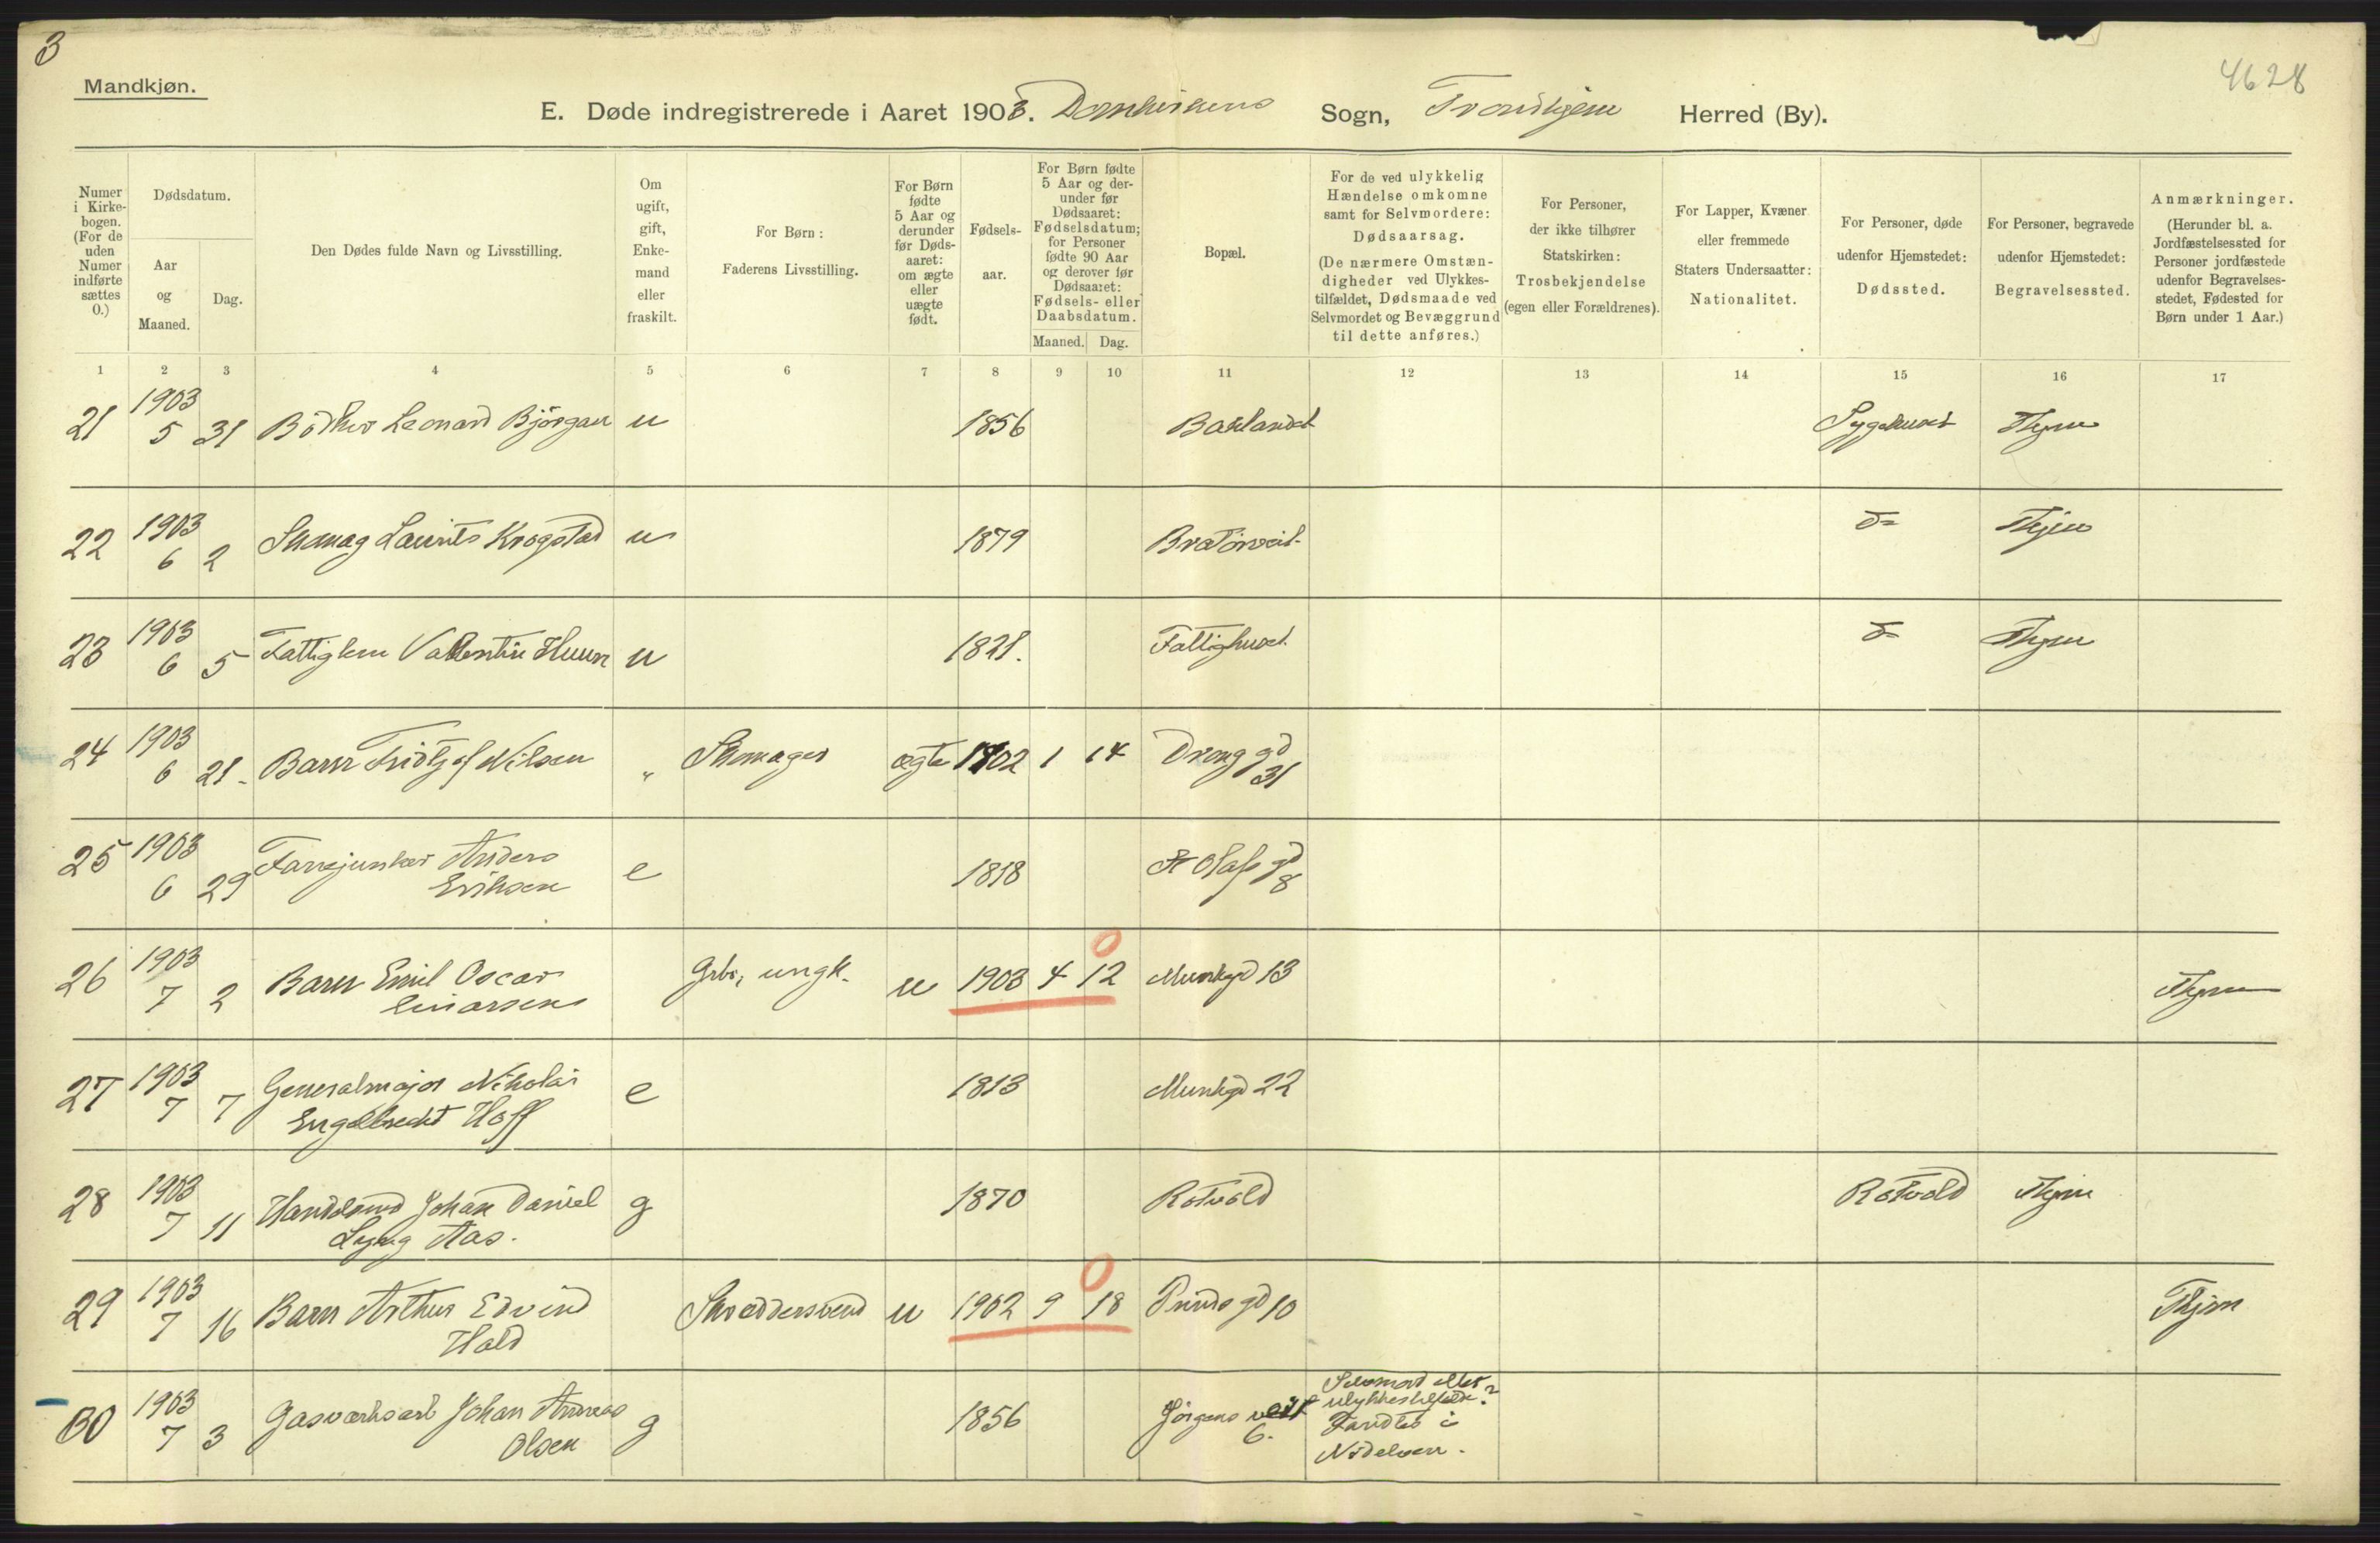 3
4628
Mandkjøn.
E. Døde indregistrerede i Aaret 1903. Domkirkens Sogn, Trondhjem Herred (By).
Numer i Kirkebogen. (For de uden Numer indførte sættes 0.)
Dødsdatum.
Aar og Maaned.
Dag.
Den Dødes fulde Navn og Livsstilling.
Om ugift, gift, Enkemand eller fraskilt.
For Børn: Faderens Livsstilling.
For Børn fødte 5 Aar og derunder før Dødsaaret: om ægte eller uægte født.
Fødselsaar.
For Børn fødte 5 Aar og derunder før Dødsaaret: Fødselsdatum; for Personer fødte 90 Aar og derover før Dødsaaret: Fødsels- eller Daabsdatum.
Maaned. Dag.
Bopæl.
For de ved ulykkelig Hændelse omkomne samt for Selvmordere: Dødsaarsag. (De nærmere Omstændigheder ved Ulykkestilfældet, Dødsmaade ved Selvmordet og Bevæggrund til dette anføres.)
For Personer, der ikke tilhører Statskirken: Trosbekjendelse (egen eller Forældrenes).
For Lapper, Kvæner eller fremmede Staters Undersaatter: Nationalitet.
For Personer, døde udenfor Hjemstedet: Dødssted.
For Personer, begravede udenfor Hjemstedet: Begravelsessted.
Anmærkninger. (Herunder bl. a. Jordfæstelsessted for Personer jordfæstede udenfor Begravelsesstedet, Fødested for Børn under 1 Aar.)
1 2 3 4 5 6 7 8 9 10 11 12 13 14 15 16 17
21 1903 5 31 Bödker Leonard Bjørgan u 1856 Baklandet Sygehuset Thjem
22 1903 6 2 Skomag Laurits Krogstad u 1879 Bratørveit- do Thjem
23 1903 6 5 Fattiglem Valentin Huun u 1821. Fattighuset do Thjem
24 1903 6 21- Barn Fridtjof Nilsen " Skomager ægte 1902 1 14 Drong gd 31
25 1903 6 29 Fanejunker Anders
Eriksen e 1818 St Olafs gd 8
26 1903 7 2 Barn Emil Oscar
Einarsen Grbr, ungk. u 1903 4 12 0 Munkgd 13 Thjem
27 1903 7 7 Generalmajor Nikolai
Engelbrecht Hoff e 1813 Munkgd 22
28 1903 7 11 Handelsmd Johan Daniel
Lyng Aas. g 1870 Rotvold Rotvold Thjem
29 1903 7 16 Barn Arthur Edvin
Hald Skræddersvend u 1902 9 18 0 Prinds gd 10 Thjem
30 1903 7 3 Gasværksarb Johan Andreas
Olsen g 1856 Jörgens veit 6. Selvmord eller
ulykkestilfælde?
Fandtes i
Nidelven.